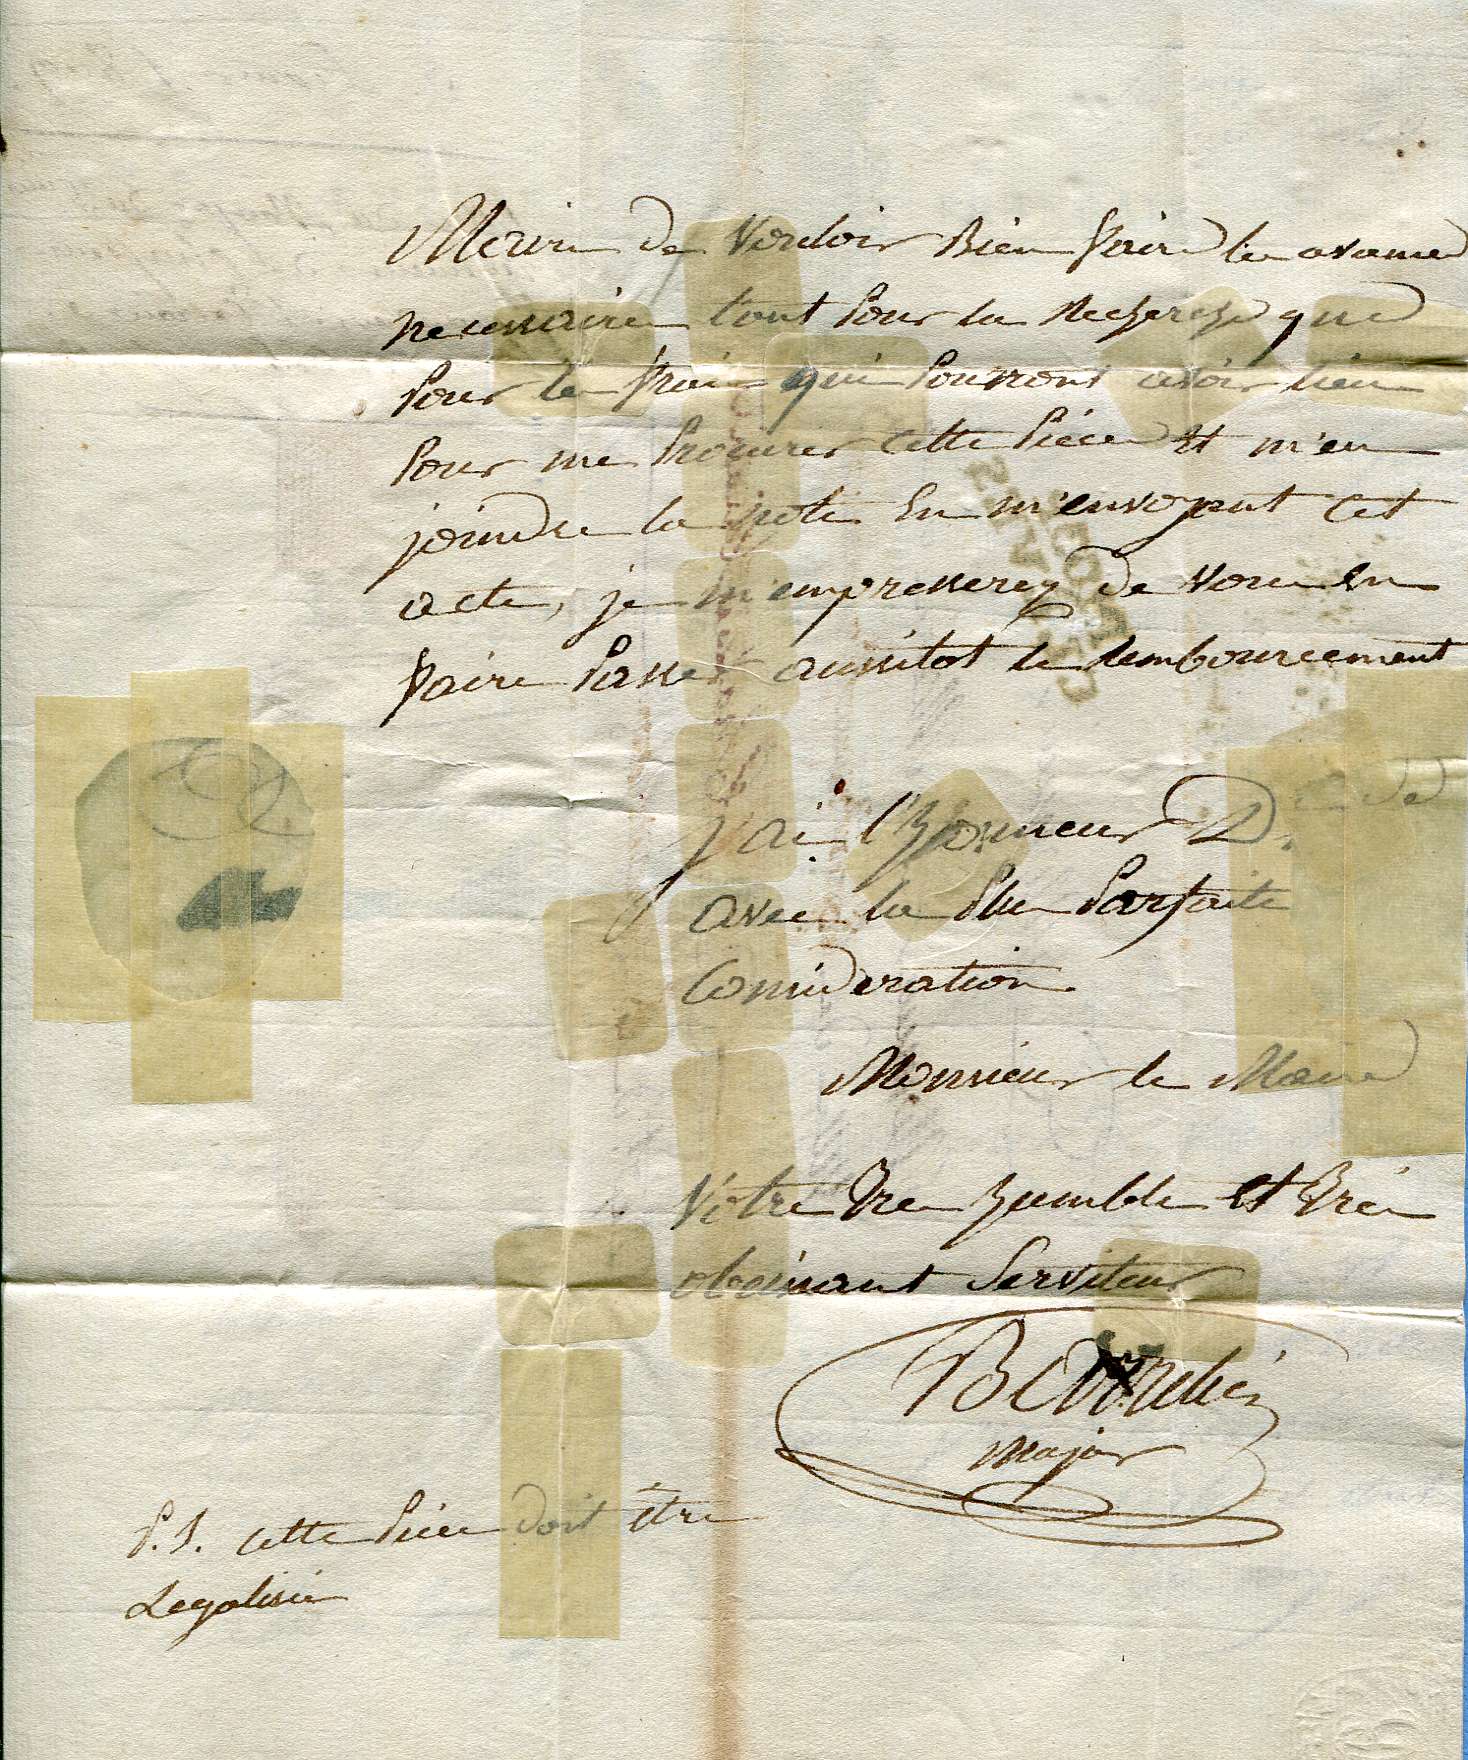 Maire de vouloir Bien faire les avances
necessaires tant Pour la Recherche que
Pour les frais qui Pourront avoir lieu
Pour me Procurer cette Piéce et m'en
joindre la note En m'envoyant cet
acte, je m'empresserey de vous En
faire Passer aussitot le remboursement
J'ai l'honneur D.
avec la Plus Parfaite
Consideration.
Monsieur le Maire
Votre Tres humble et Tres
obeissant Serviteur
Major
P.S. cette Piéce doit être
Legalisée